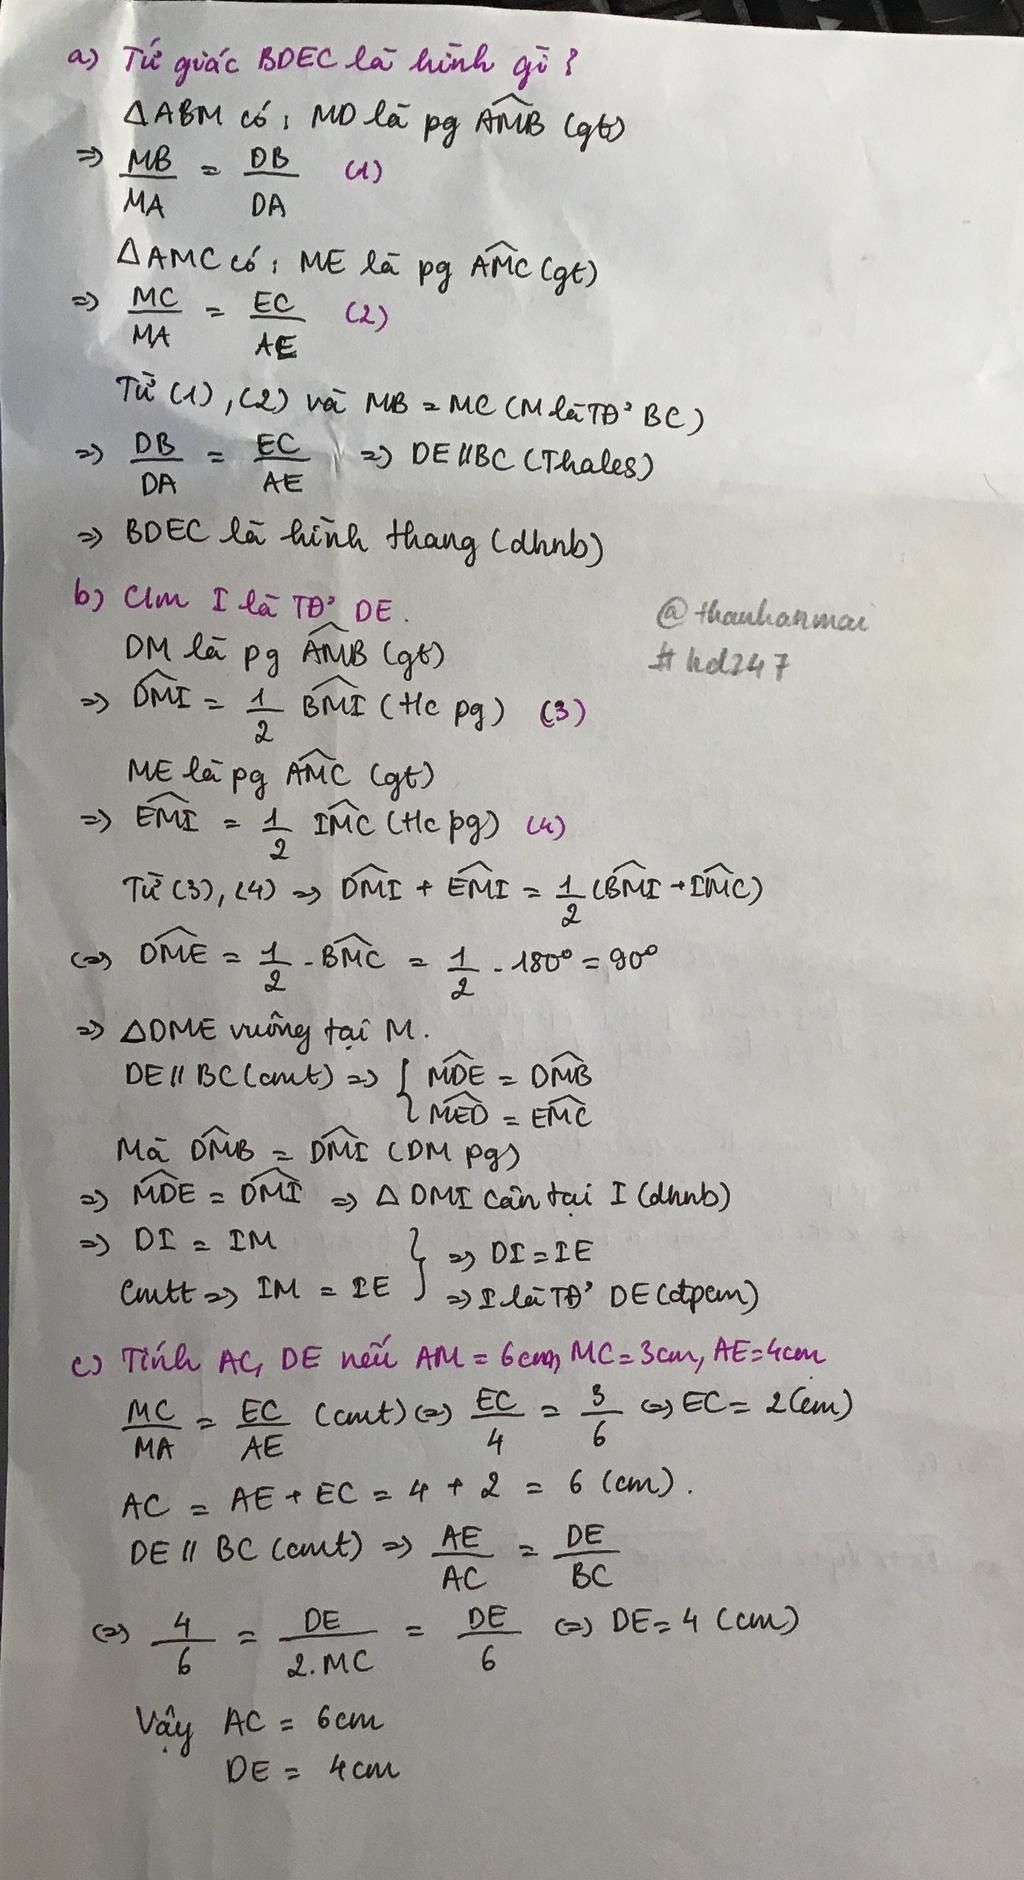 a) Tứ giác BDEC là hình gì?
ΔABM có: MD là pg \widehat{AMB} (gt)
=> \frac{MB}{MA} = \frac{DB}{DA} (1)
ΔAMC có: ME là pg \widehat{AMC} (gt)
=> \frac{MC}{MA} = \frac{EC}{AE} (2)
Từ (1), (2) và MB = MC (M là TĐ' BC)
=> \frac{DB}{DA} = \frac{EC}{AE} => DE // BC (Thales)
=> BDEC là hình thang (dhnb)
b) Cm I là TĐ' DE.
@thanhanmai
DM là pg \widehat{AMB} (gt)
#hd247
=> \widehat{DMI} = \frac{1}{2} \widehat{BMI} (t/c pg) (3)
ME là pg \widehat{AMC} (gt)
=> \widehat{EMI} = \frac{1}{2} \widehat{IMC} (t/c pg) (4)
Từ (3), (4) => \widehat{DMI} + \widehat{EMI} = \frac{1}{2} (\widehat{BMI} + \widehat{IMC})
<=> \widehat{DME} = \frac{1}{2} . \widehat{BMC} = \frac{1}{2} . 180° = 90°
=> ΔDME vuông tại M.
DE // BC (cmt) => { \widehat{MDE} = \widehat{DMB}
\widehat{MED} = \widehat{EMC}
Mà \widehat{DMB} = \widehat{DMI} (DM pg)
=> \widehat{MDE} = \widehat{DMI} => Δ DMI cân tại I (dhnb)
=> DI = IM } => DI = IE
Cmtt => IM = IE => I là TĐ' DE (đpcm)
c) Tính AC, DE nếu AM = 6cm, MC = 3cm, AE = 4cm
\frac{MC}{MA} = \frac{EC}{AE} (cmt) <=> \frac{EC}{4} = \frac{3}{6} <=> EC = 2 (cm)
AC = AE + EC = 4 + 2 = 6 (cm).
DE // BC (cmt) => \frac{AE}{AC} = \frac{DE}{BC}
<=> \frac{4}{6} = \frac{DE}{2.MC} = \frac{DE}{6} <=> DE = 4 (cm)
Vậy AC = 6cm
DE = 4cm